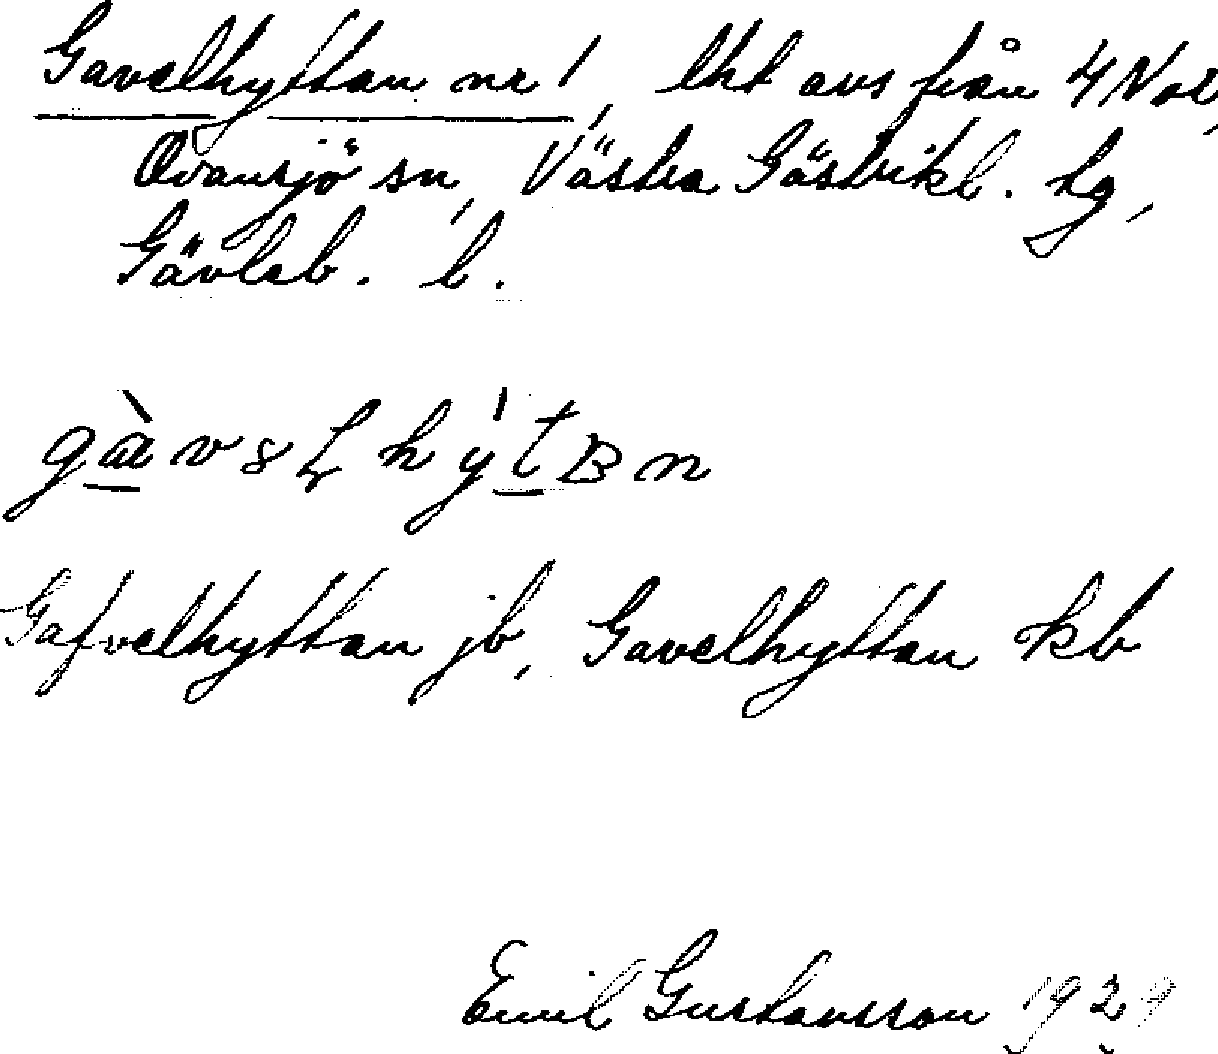 Gavelhyttan nr 1, lht avs från 4 Nor,
Ovansjö sn, Västra Gästrikl. tg,
Gävleb. l.
Gafvelhyttan jb, Gavelhyttan kb
Emil Gustavsson 1929